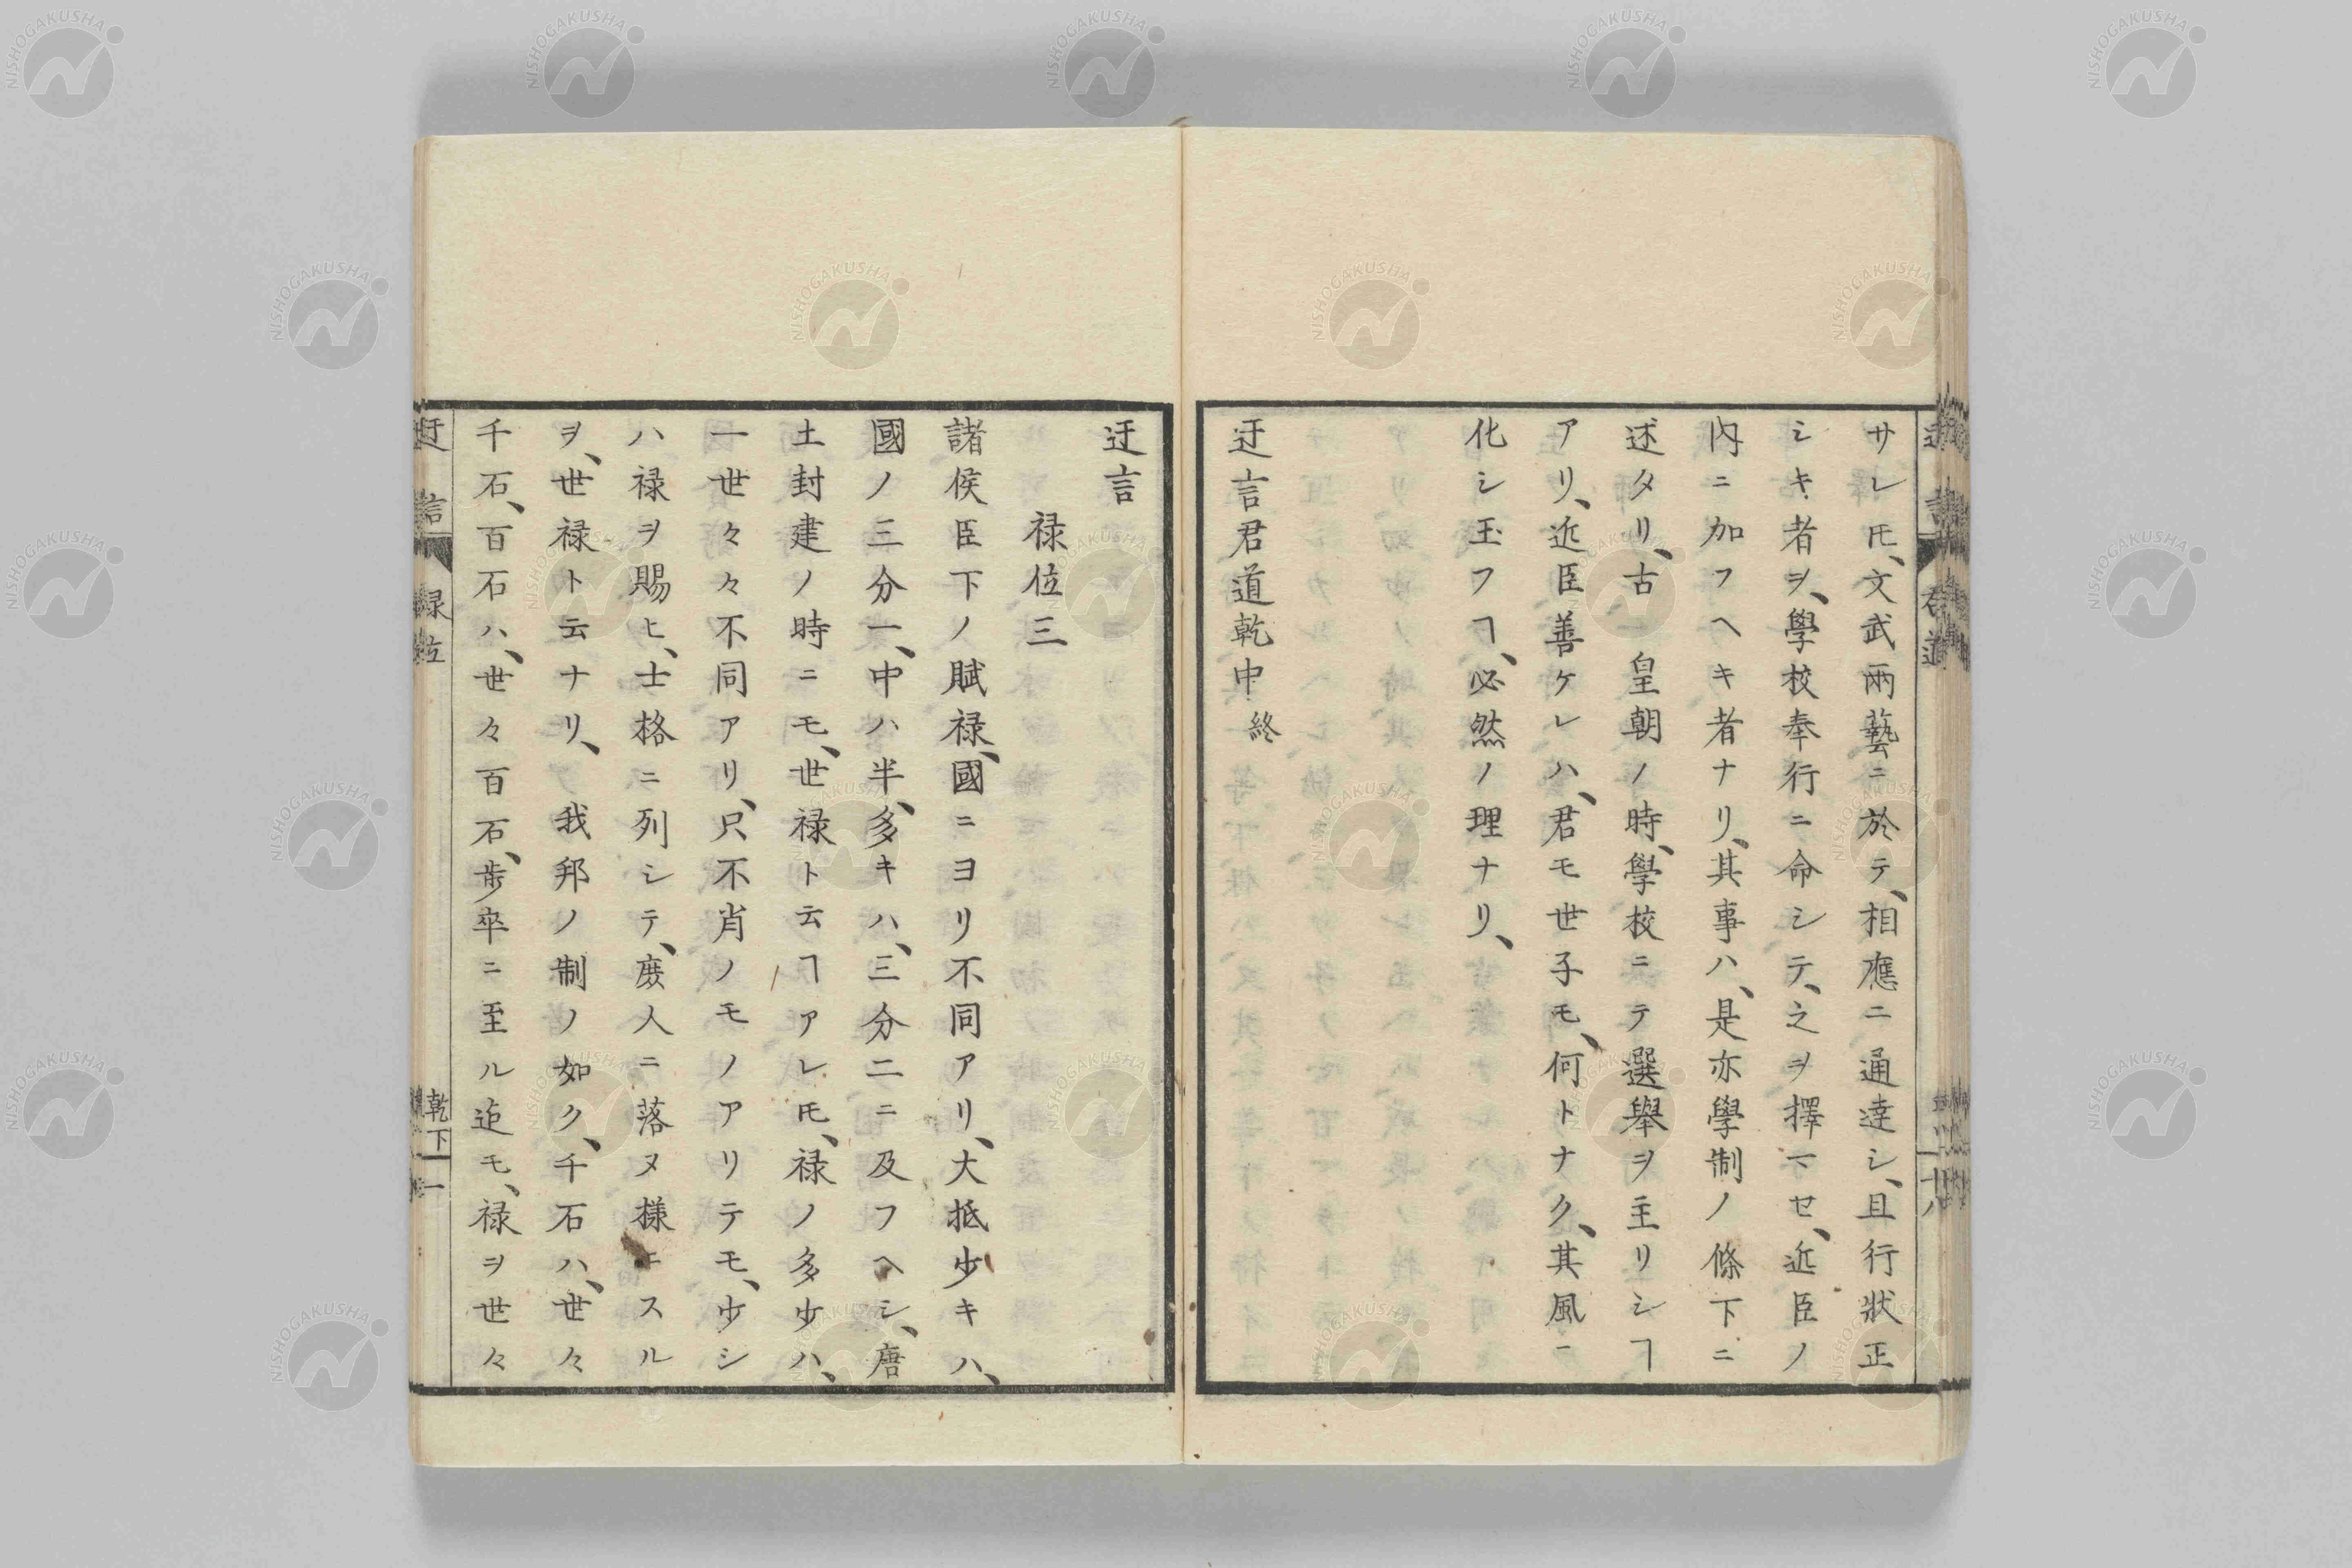 サレ𪜈、文武兩藝ニ於テ、相應ニ通達シ、且行狀正
シキ者ヲ、學校奉行ニ命シテ、之ヲ擇マセ、近臣ノ
內ニ加フヘキ者ナリ、其事ハ、是亦學制ノ條下ニ
述タリ、古 皇朝ノ時、學校ニテ選舉ヲ主リシヿ
アリ、近臣善ケレハ、君モ世子モ、何トナク、其風ニ
化シ玉フヿ、必然ノ理ナリ、
迂言君道乾中 終
迂言
祿位三
諸侯臣下ノ賦祿、國ニヨリ不同アリ、大抵少キハ、
國ノ三分一、中ハ半、多キハ、三分二ニ及フヘシ、唐
土封建ノ時ニモ、世祿ト云ヿアレ𪜈、祿ノ多少ハ、
一世々々不同アリ、只不肖ノモノアリテモ、少シ
ハ祿ヲ賜ヒ、士格ニ列シテ、庶人ニ落ヌ様ニスル
ヲ、世祿ト云ナリ、 我邦ノ制ノ如ク、千石ハ、世々
千石、百石ハ、世々百石、歩卒ニ至ル迄モ、祿ヲ世々
迂言 祿位 乾下 一
NISHOGAKUSHA